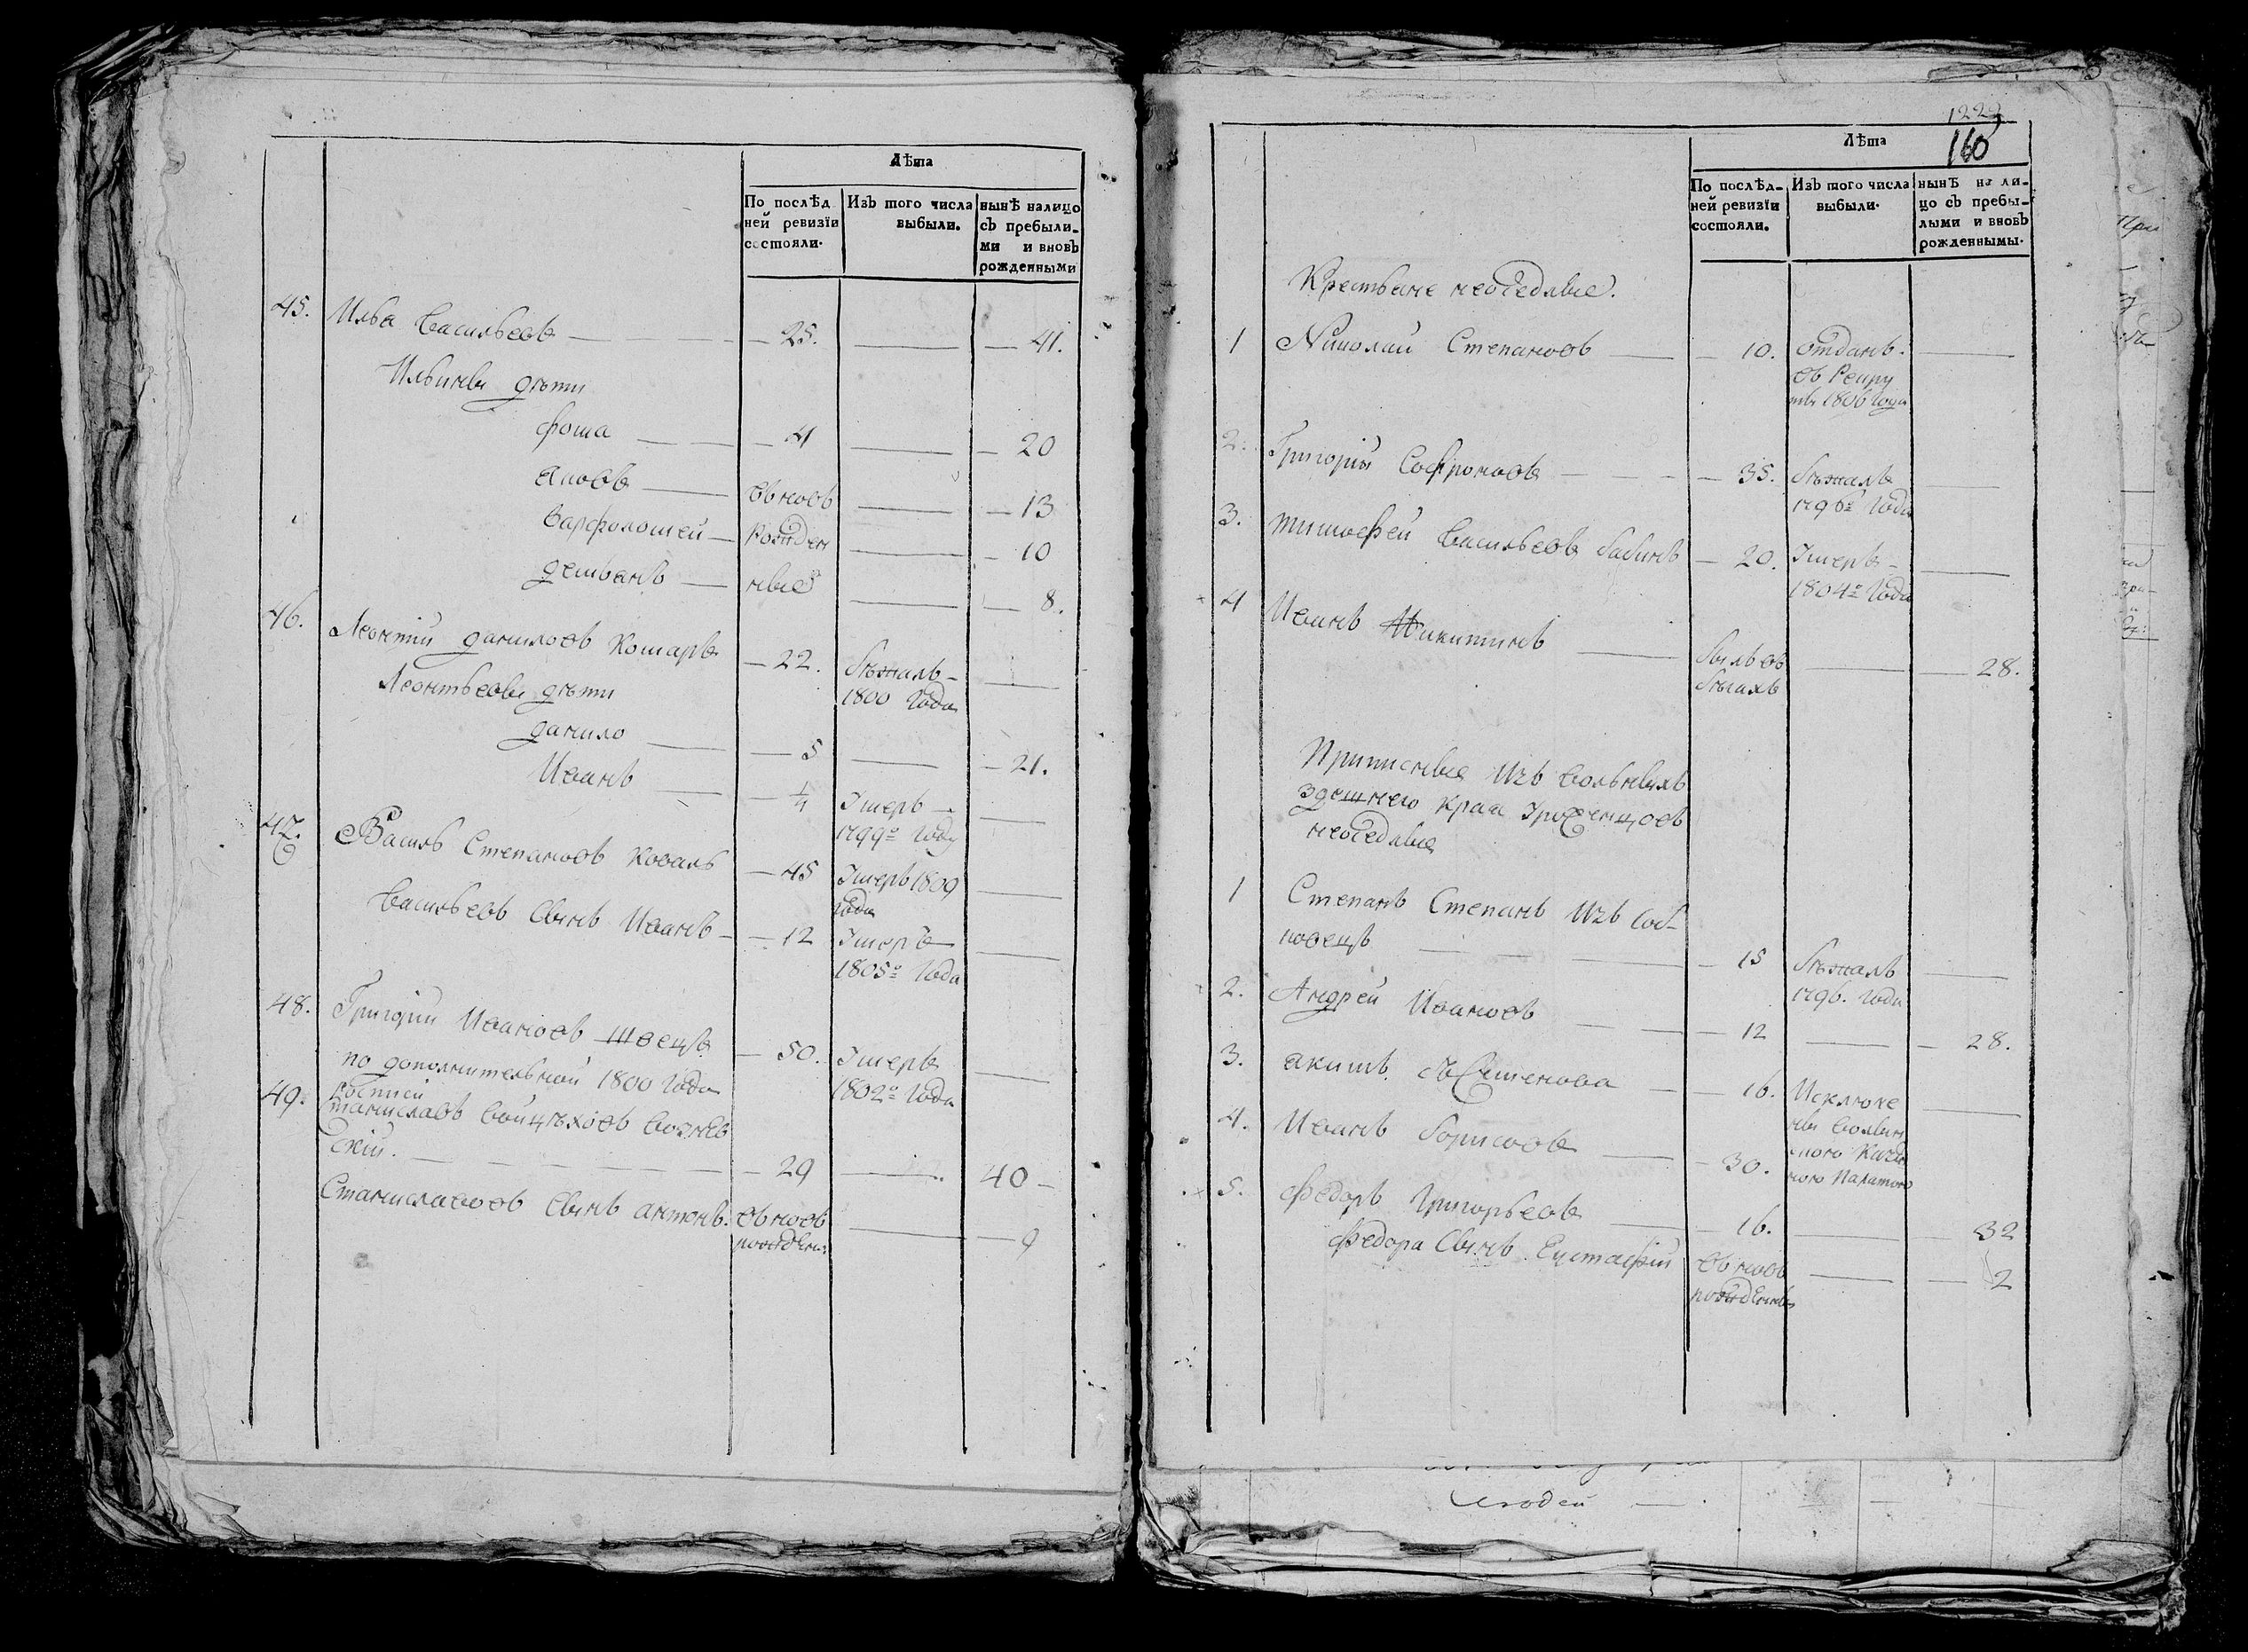 Лѣта
По послѣд
ней ревизїи
состояли.
Изъ того числа
выбыли.
нынѣ налицо
съ пребыли-
ми и вновь
рожденными
45. Илья Васильевъ — 25. — 41.
Ильины дѣти
Фома — 4 — 20
Яковъ — вновь — 13
Варфоломей — рожден — 10
Демьянъ — ные — 8.
46. Леонтий Даниловъ Комаръ — 22. бѣжалъ —
1800 года
Леонтьевы дѣти
Данило — 5 — 21.
Иванъ — 1/4 Умеръ —
1799го году
47. Василь Степановъ Коваль — 45 Умеръ 1809
года
Васильевъ сынъ Иванъ — 12 Умеръ —
1805го года
48. Григорий Ивановъ Швецъ — 50. Умеръ —
1802го года
по дополнительной 1800 года
росписи
49. Станиславъ Войцѣховъ
ский. — 29 — 40 —
Станиславовъ сынъ Антонъ. вновь — 9
рожден:
1229
160
Лѣта
По послѣд-
ней ревизїи
состояли.
Изъ того числа
выбыли.
нынѣ на ли-
цо съ пребы-
лыми и вновь
рожденнымы.
Крестьяне неоседлые.
1 Николай Степановъ — 10. отданъ
въ Рекру
ты 1806 года
2. Григорий Софроновъ — 35. бѣжалъ —
1796го года
3. Тимофей Васильевъ Бабинъ — 20. Умеръ —
1804го года
4 Иванъ Никитинъ — былъ въ — 28.
бѣгахъ
Приписные Изъ вольныхъ
здешнего края Уроженцовъ
неоседлые
1 Степанъ Степанъ Изъ
— 15 бѣжалъ —
1796. года
2. Андрей Ивановъ — 12 — 28.
3. Якимъ — 16. Исключе —
4. Иванъ Борисовъ — 30. ны Волын
ского Казен
ного Палатою
5. Федоръ Григорьевъ — 16. — 32
Федора сынъ Евстафий вновь — 2
рожденны
людей —